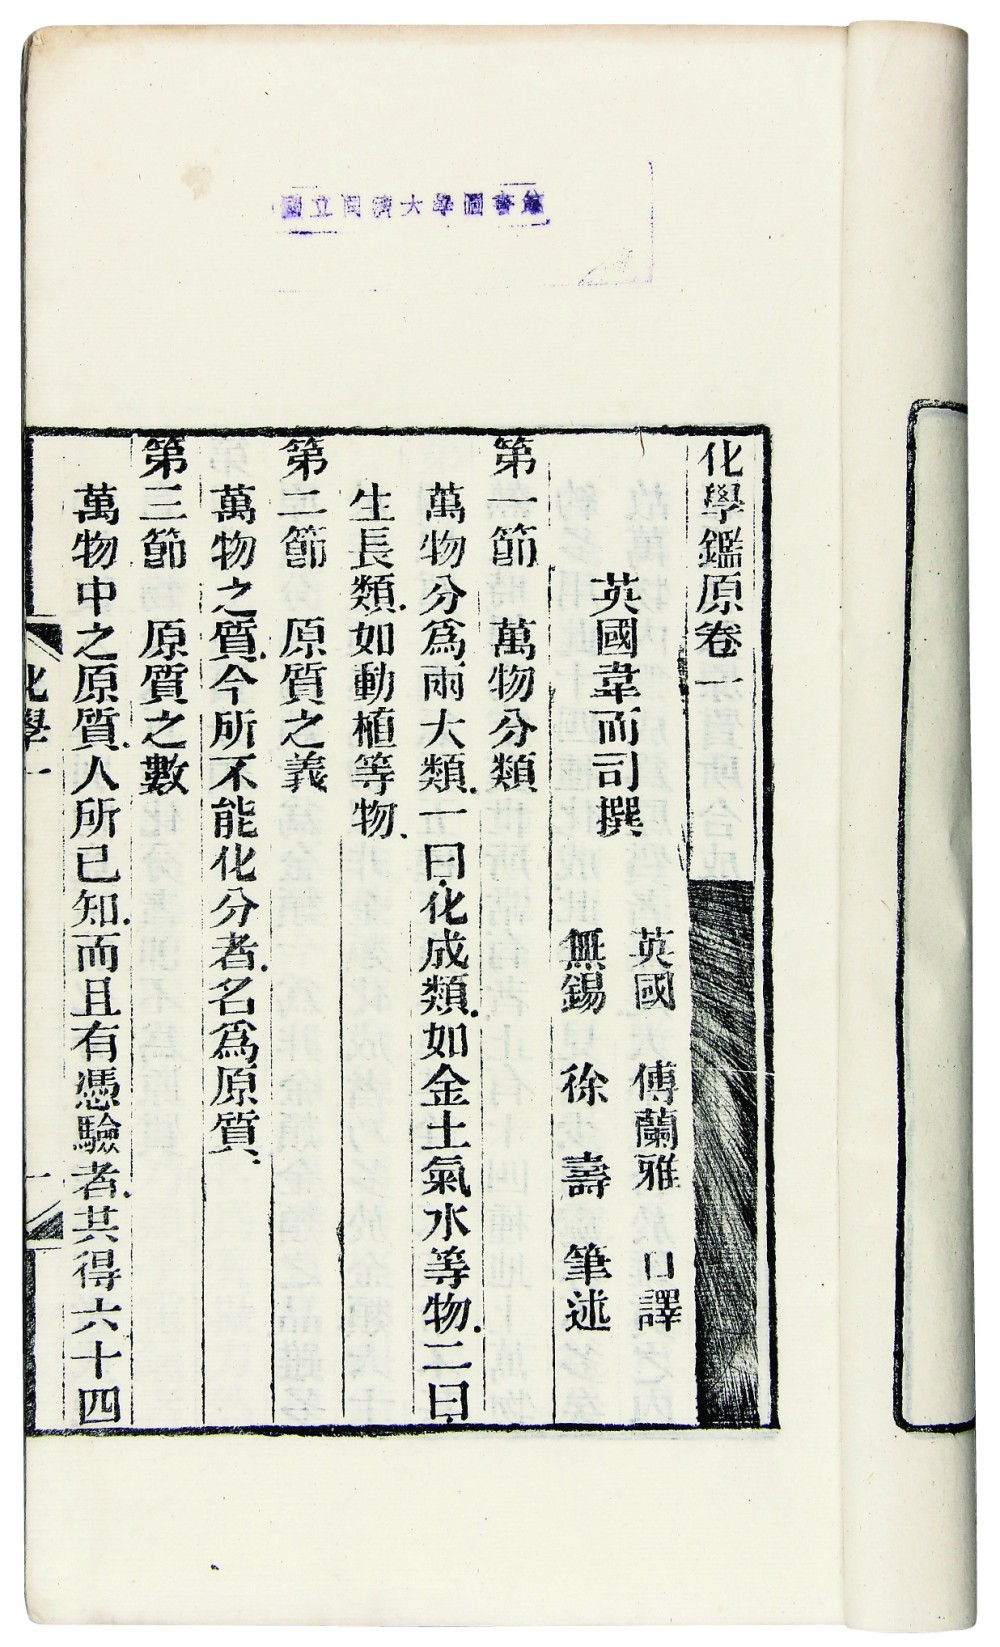 化學鑑原卷一
英國韋而司撰
英國 傅蘭雅 口譯
無錫 徐壽 筆述
第一節 萬物分類
萬物分爲兩大類.一曰.化成類.如金土氣水等物.二曰.
生長類.如動植等物.
第二節 原質之義
萬物之質.今所不能化分者.名爲原質.
第三節 原質之數
萬物中之原質.人所已知.而且有憑驗者.共得六十四
化學一
一